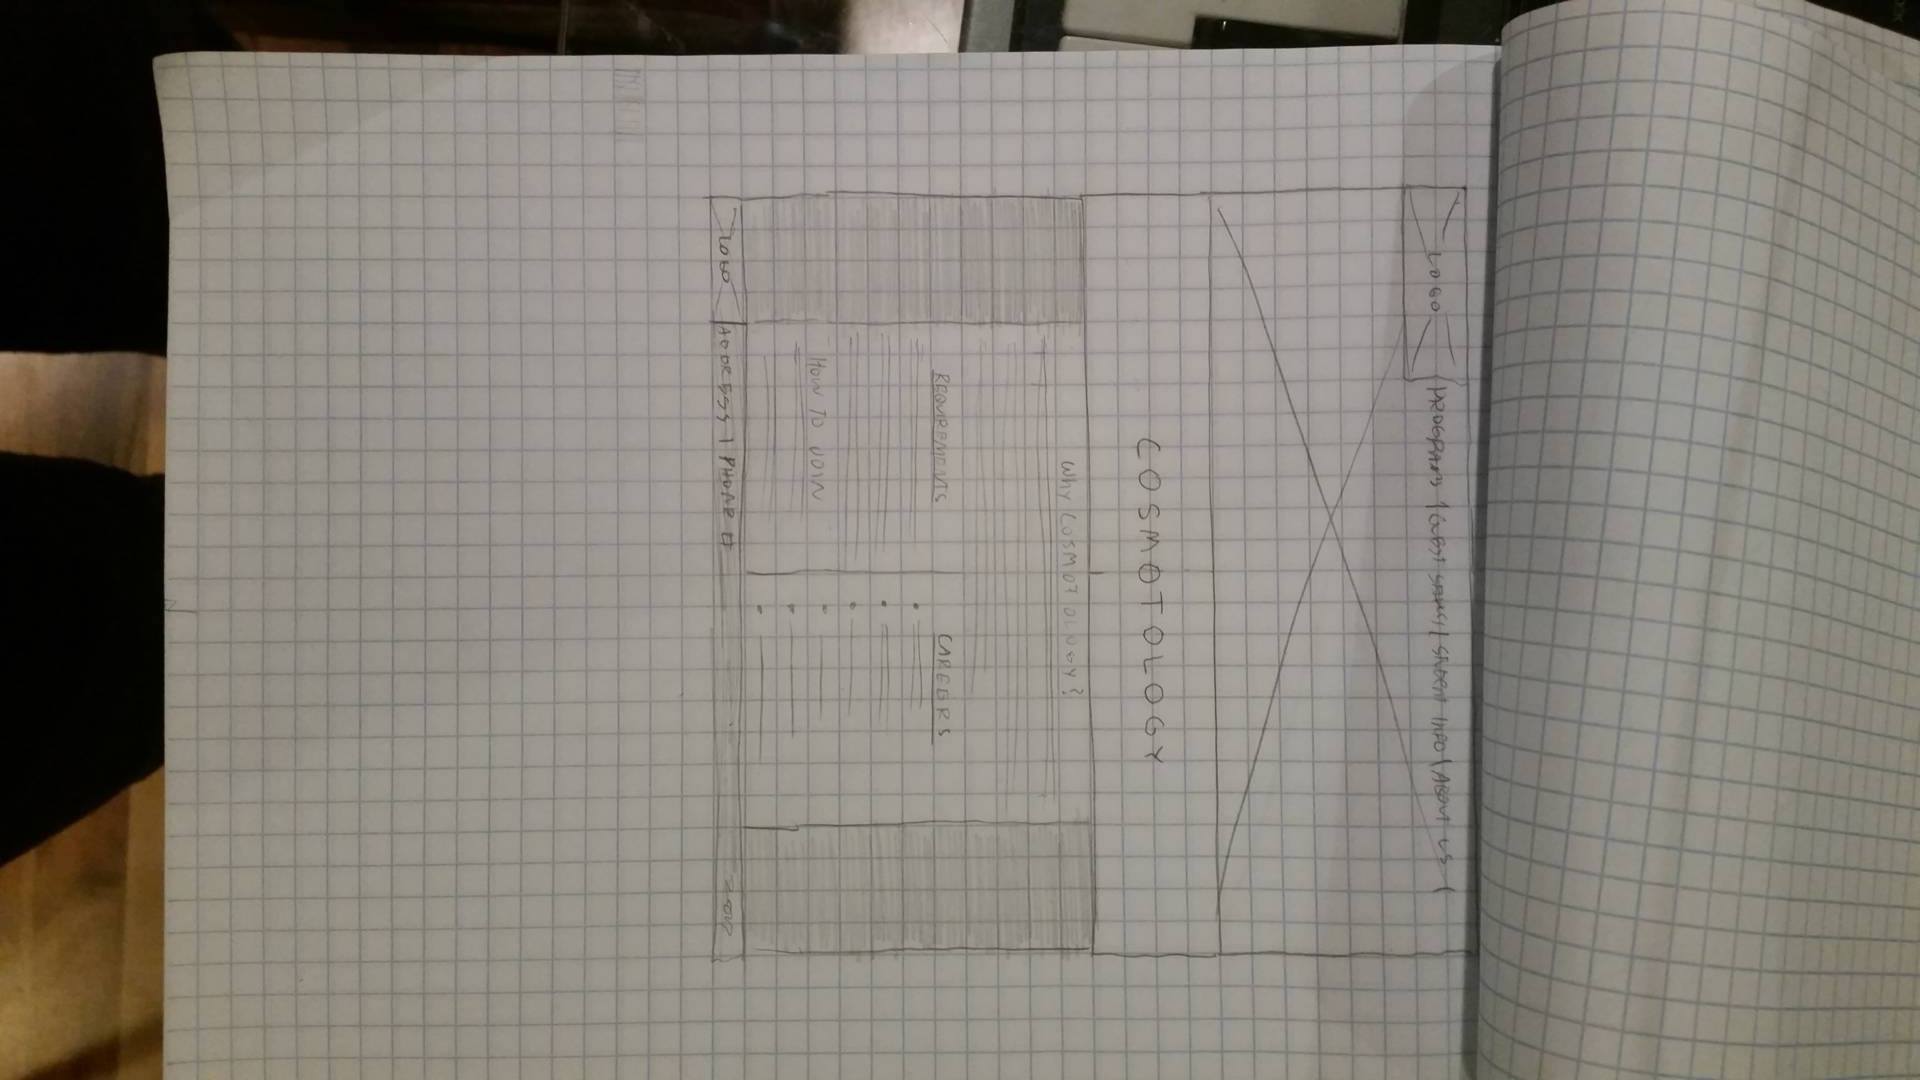 LOGO | PROGRAMS | | STUDENT INFO | ABOUT US |
COSMOTOLOGY
WHY COSMOTOLOGY?
REQUIREMENTS
CAREERS
HOW TO JOIN
LOGO ADDRESS | PHONE #